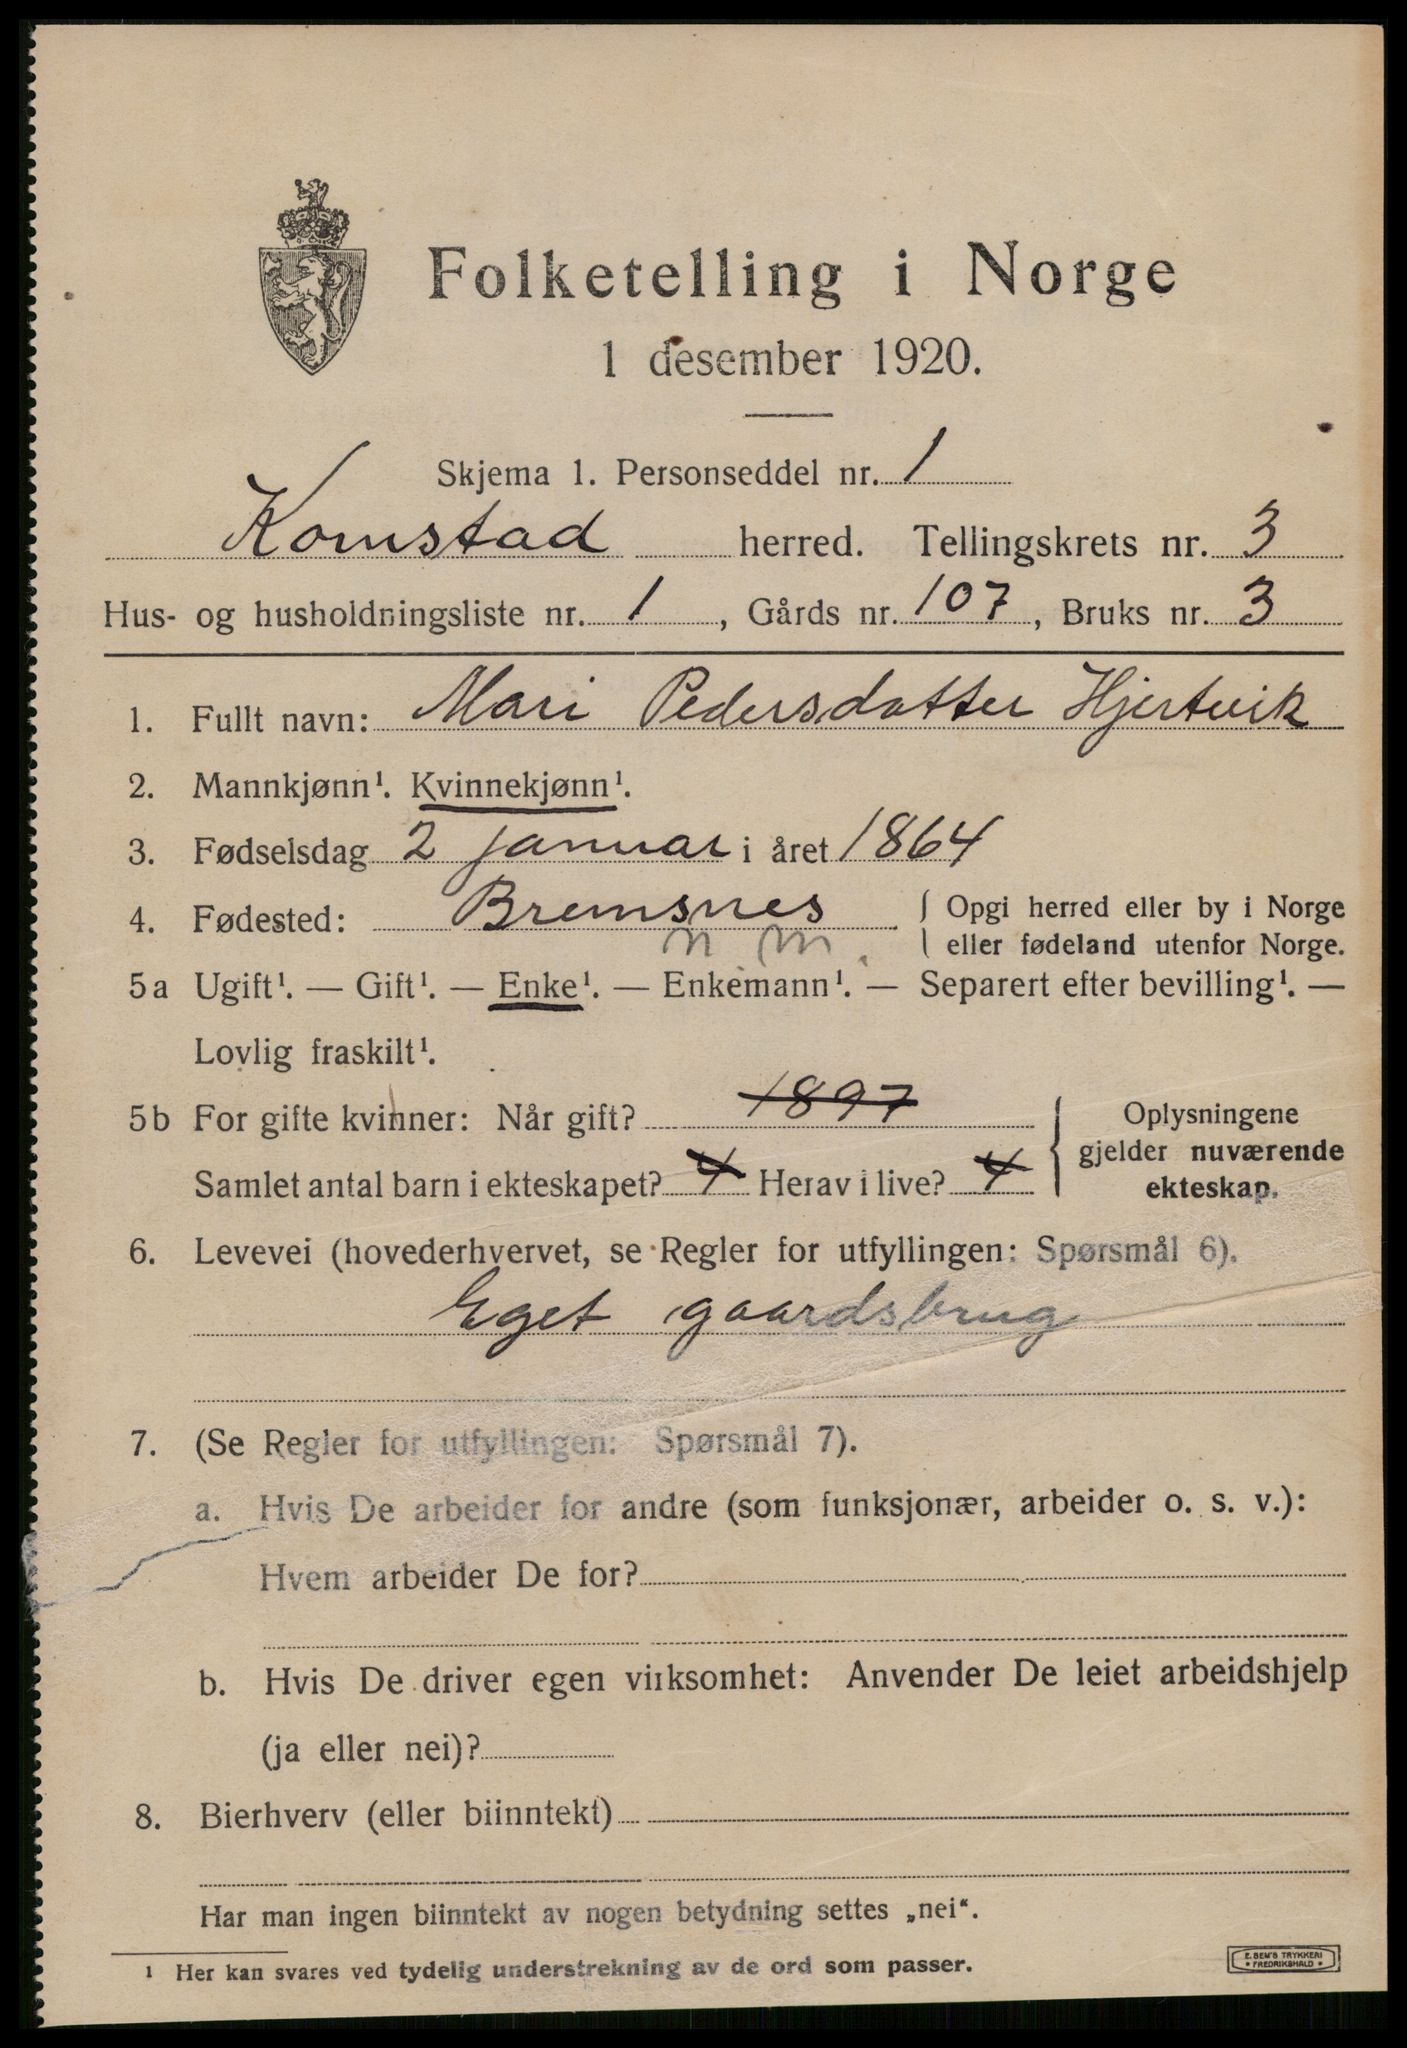 Folketelling i Norge
1 desember 1920.
Skjema 1. Personseddel nr. 1
Kornstad herred. Tellingskrets nr. 3
Hus- og husholdningsliste nr. 1, Gårds nr. 107, Bruks nr. 3
1. Fullt navn: Mari Pedersdatter Hjertvik
2. Mannkjønn¹. Kvinnekjønn¹.
3. Fødselsdag 2 januar i året 1864
4. Fødested: Bremsnes { Opgi herred eller by i Norge
n m. eller fødeland utenfor Norge.
5a Ugift¹. — Gift¹. — Enke¹. — Enkemann¹. — Separert efter bevilling¹. —
Lovlig fraskilt¹.
5b For gifte kvinner: Når gift? 1897 Oplysningene
gjelder nuværende
Samlet antal barn i ekteskapet? 4 Herav i live? 4 ekteskap.
6. Levevei (hovederhvervet, se Regler for utfyllingen: Spørsmål 6).
Eget gaardsbrug
7. (Se Regler for utfyllingen: Spørsmål 7).
a. Hvis De arbeider for andre (som funksjonær, arbeider o. s. v.):
Hvem arbeider De for?
b. Hvis De driver egen virksomhet: Anvender De leiet arbeidshjelp
(ja eller nei)?
8. Bierhverv (eller biinntekt)
Har man ingen biinntekt av nogen betydning settes „nei“.
¹ Her kan svares ved tydelig understrekning av de ord som passer.
E. SEM'S TRYKKERI
* FREDRIKSHALD *